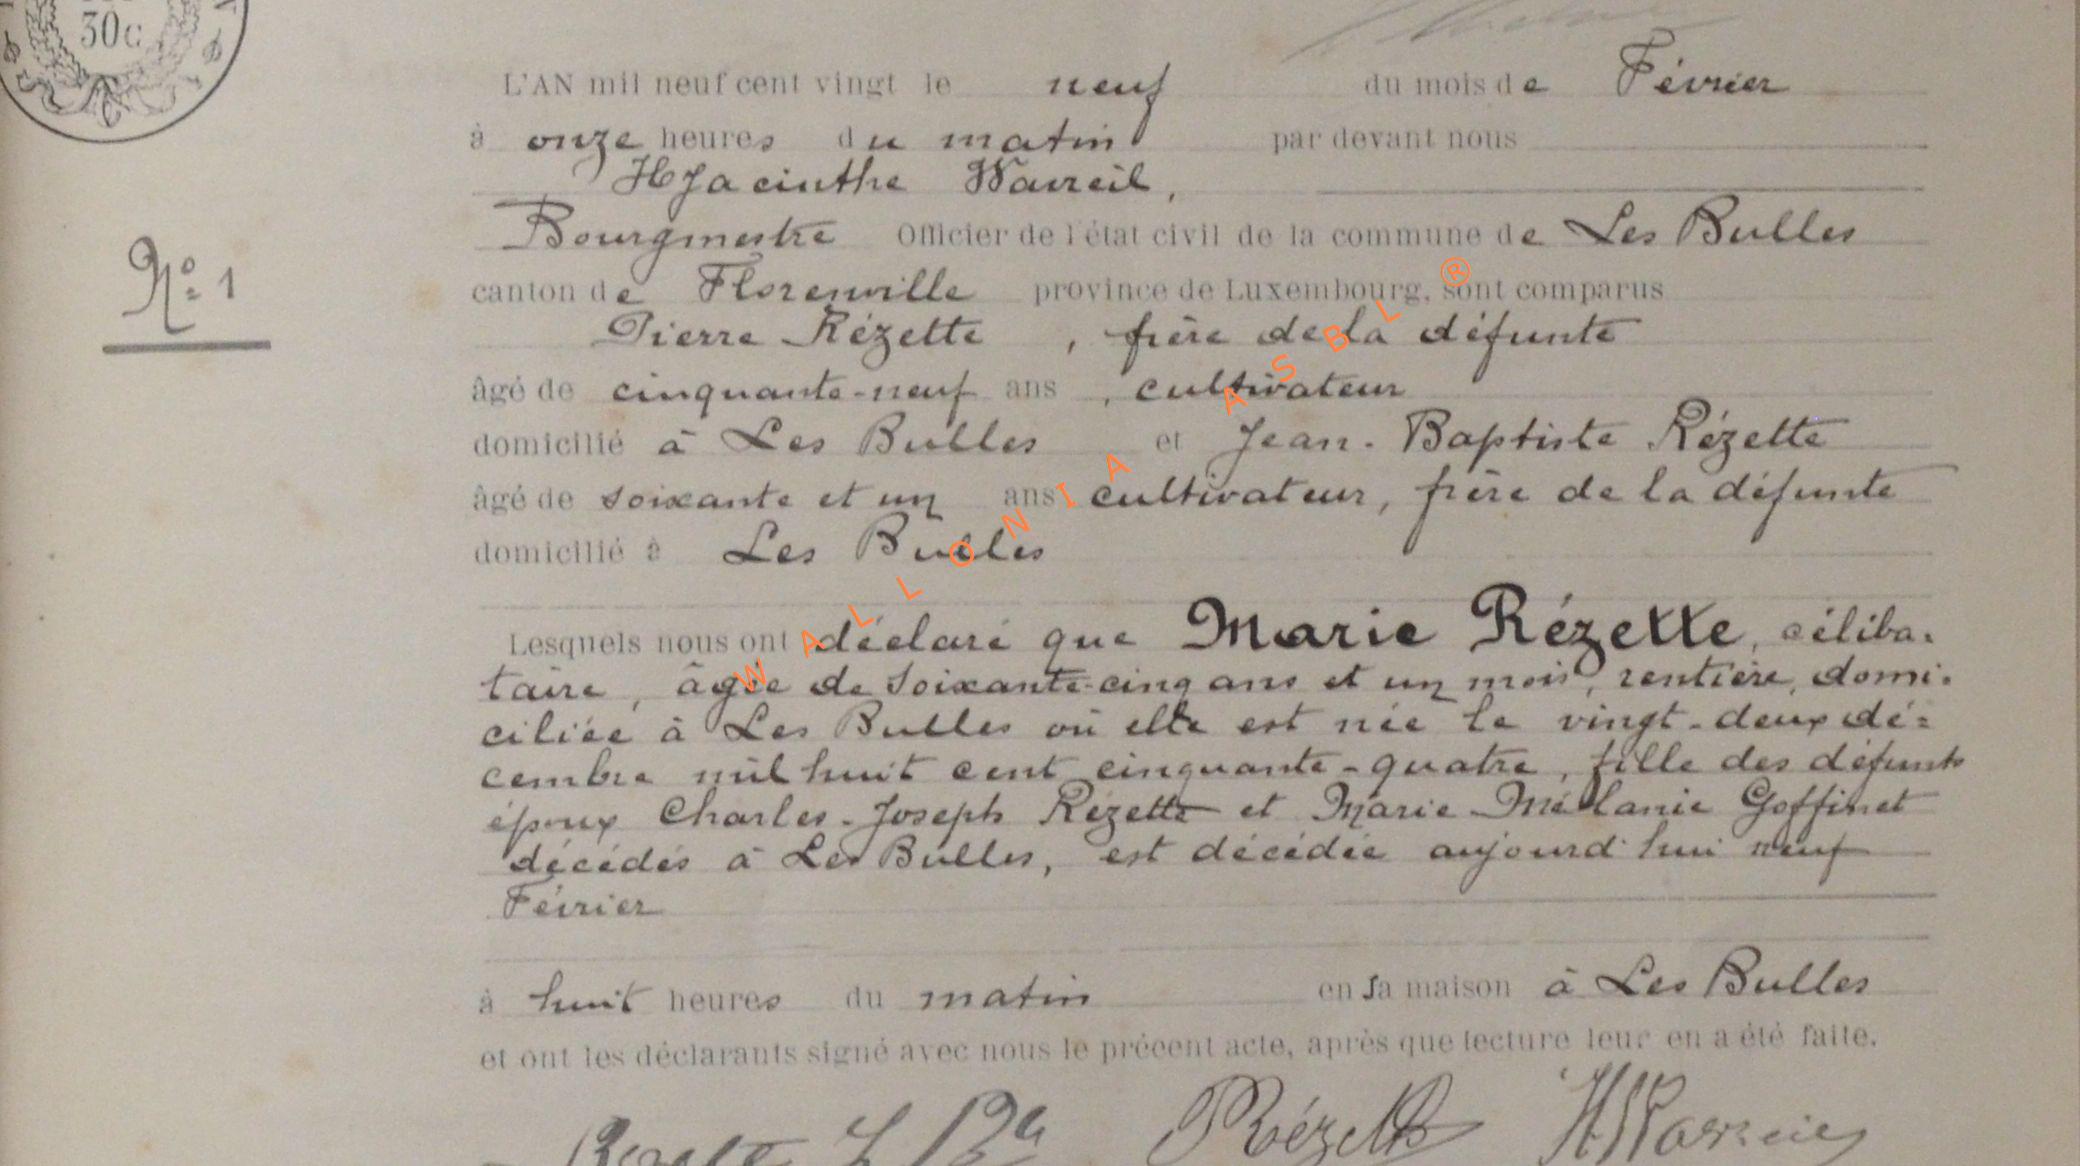 30c
L'AN mil neuf cent vingt le neuf du mois de Février
à onze heures du matin par devant nous
Hyacinthe Wavreil,
Bourgmestre Officier de l'état civil de la commune de Les Bulles
N° 1
canton de Florenville province de Luxembourg, sont comparus
Pierre Rézette, frère de la défunte
âgé de cinquante-neuf ans, cultivateur
domicilié à Les Bulles et Jean-Baptiste Rézette
âgé de soixante et un ans cultivateur, frère de la défunte
domicilié à Les Bulles
WALLONIA ASBL ®
Lesquels nous ont déclaré que Marie Rézette, céliba-
taire, âgée de soixante-cinq ans et un mois, rentière, domi-
ciliée à Les Bulles où elle est née le vingt-deux dé=
cembre mil huit cent cinquante-quatre, fille des défunts
époux Charles-Joseph Rézette et Marie-Mélanie Goffinet
décédés à Les Bulles, est décédée aujourd'hui neuf
Février
à huit heures du matin en sa maison à Les Bulles
et ont les déclarants signé avec nous le précent acte, après que lecture leur en a été faite.
Rézette J Bte Rézette H Wavreil